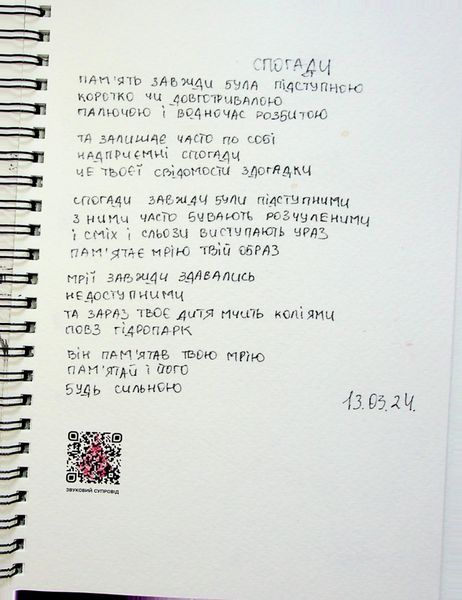 СПОГАДИ
ПАМ'ЯТЬ ЗАВЖДИ БУЛА ПІДСТУПНОЮ
КОРОТКО ЧИ ДОВГОТРИВАЛОЮ
ПАЛЮЧОЮ І ВОДНОЧАС РОЗБИТОЮ
ТА ЗАЛИШАЄ ЧАСТО ПО СОБІ
НАДПРИЄМНІ СПОГАДИ
ЧЕ ТВОЄЇ СВІДОМОСТИ ЗДОГАДКИ
СПОГАДИ ЗАВЖДИ БУЛИ ПІДСТУПНИМИ
З НИМИ ЧАСТО БУВАЮТЬ РОЗЧУЛЕНИМИ
І СМІХ І СЛЬОЗИ ВИСТУПАЮТЬ УРАЗ
ПАМ'ЯТАЄ МРІЮ ТВІЙ ОБРАЗ
МРІЇ ЗАВЖДИ ЗДАВАЛИСЬ
НЕДОСТУПНИМИ
ТА ЗАРАЗ ТВОЄ ДИТЯ МЧИТЬ КОЛІЯМИ
ПОВЗ ГІДРОПАРК
ВІН ПАМ'ЯТАВ ТВОЮ МРІЮ
ПАМ'ЯТАЙ І ЙОГО
БУДЬ СИЛЬНОЮ
13.03.24.
ЗВУКОВИЙ СУПРОВІД